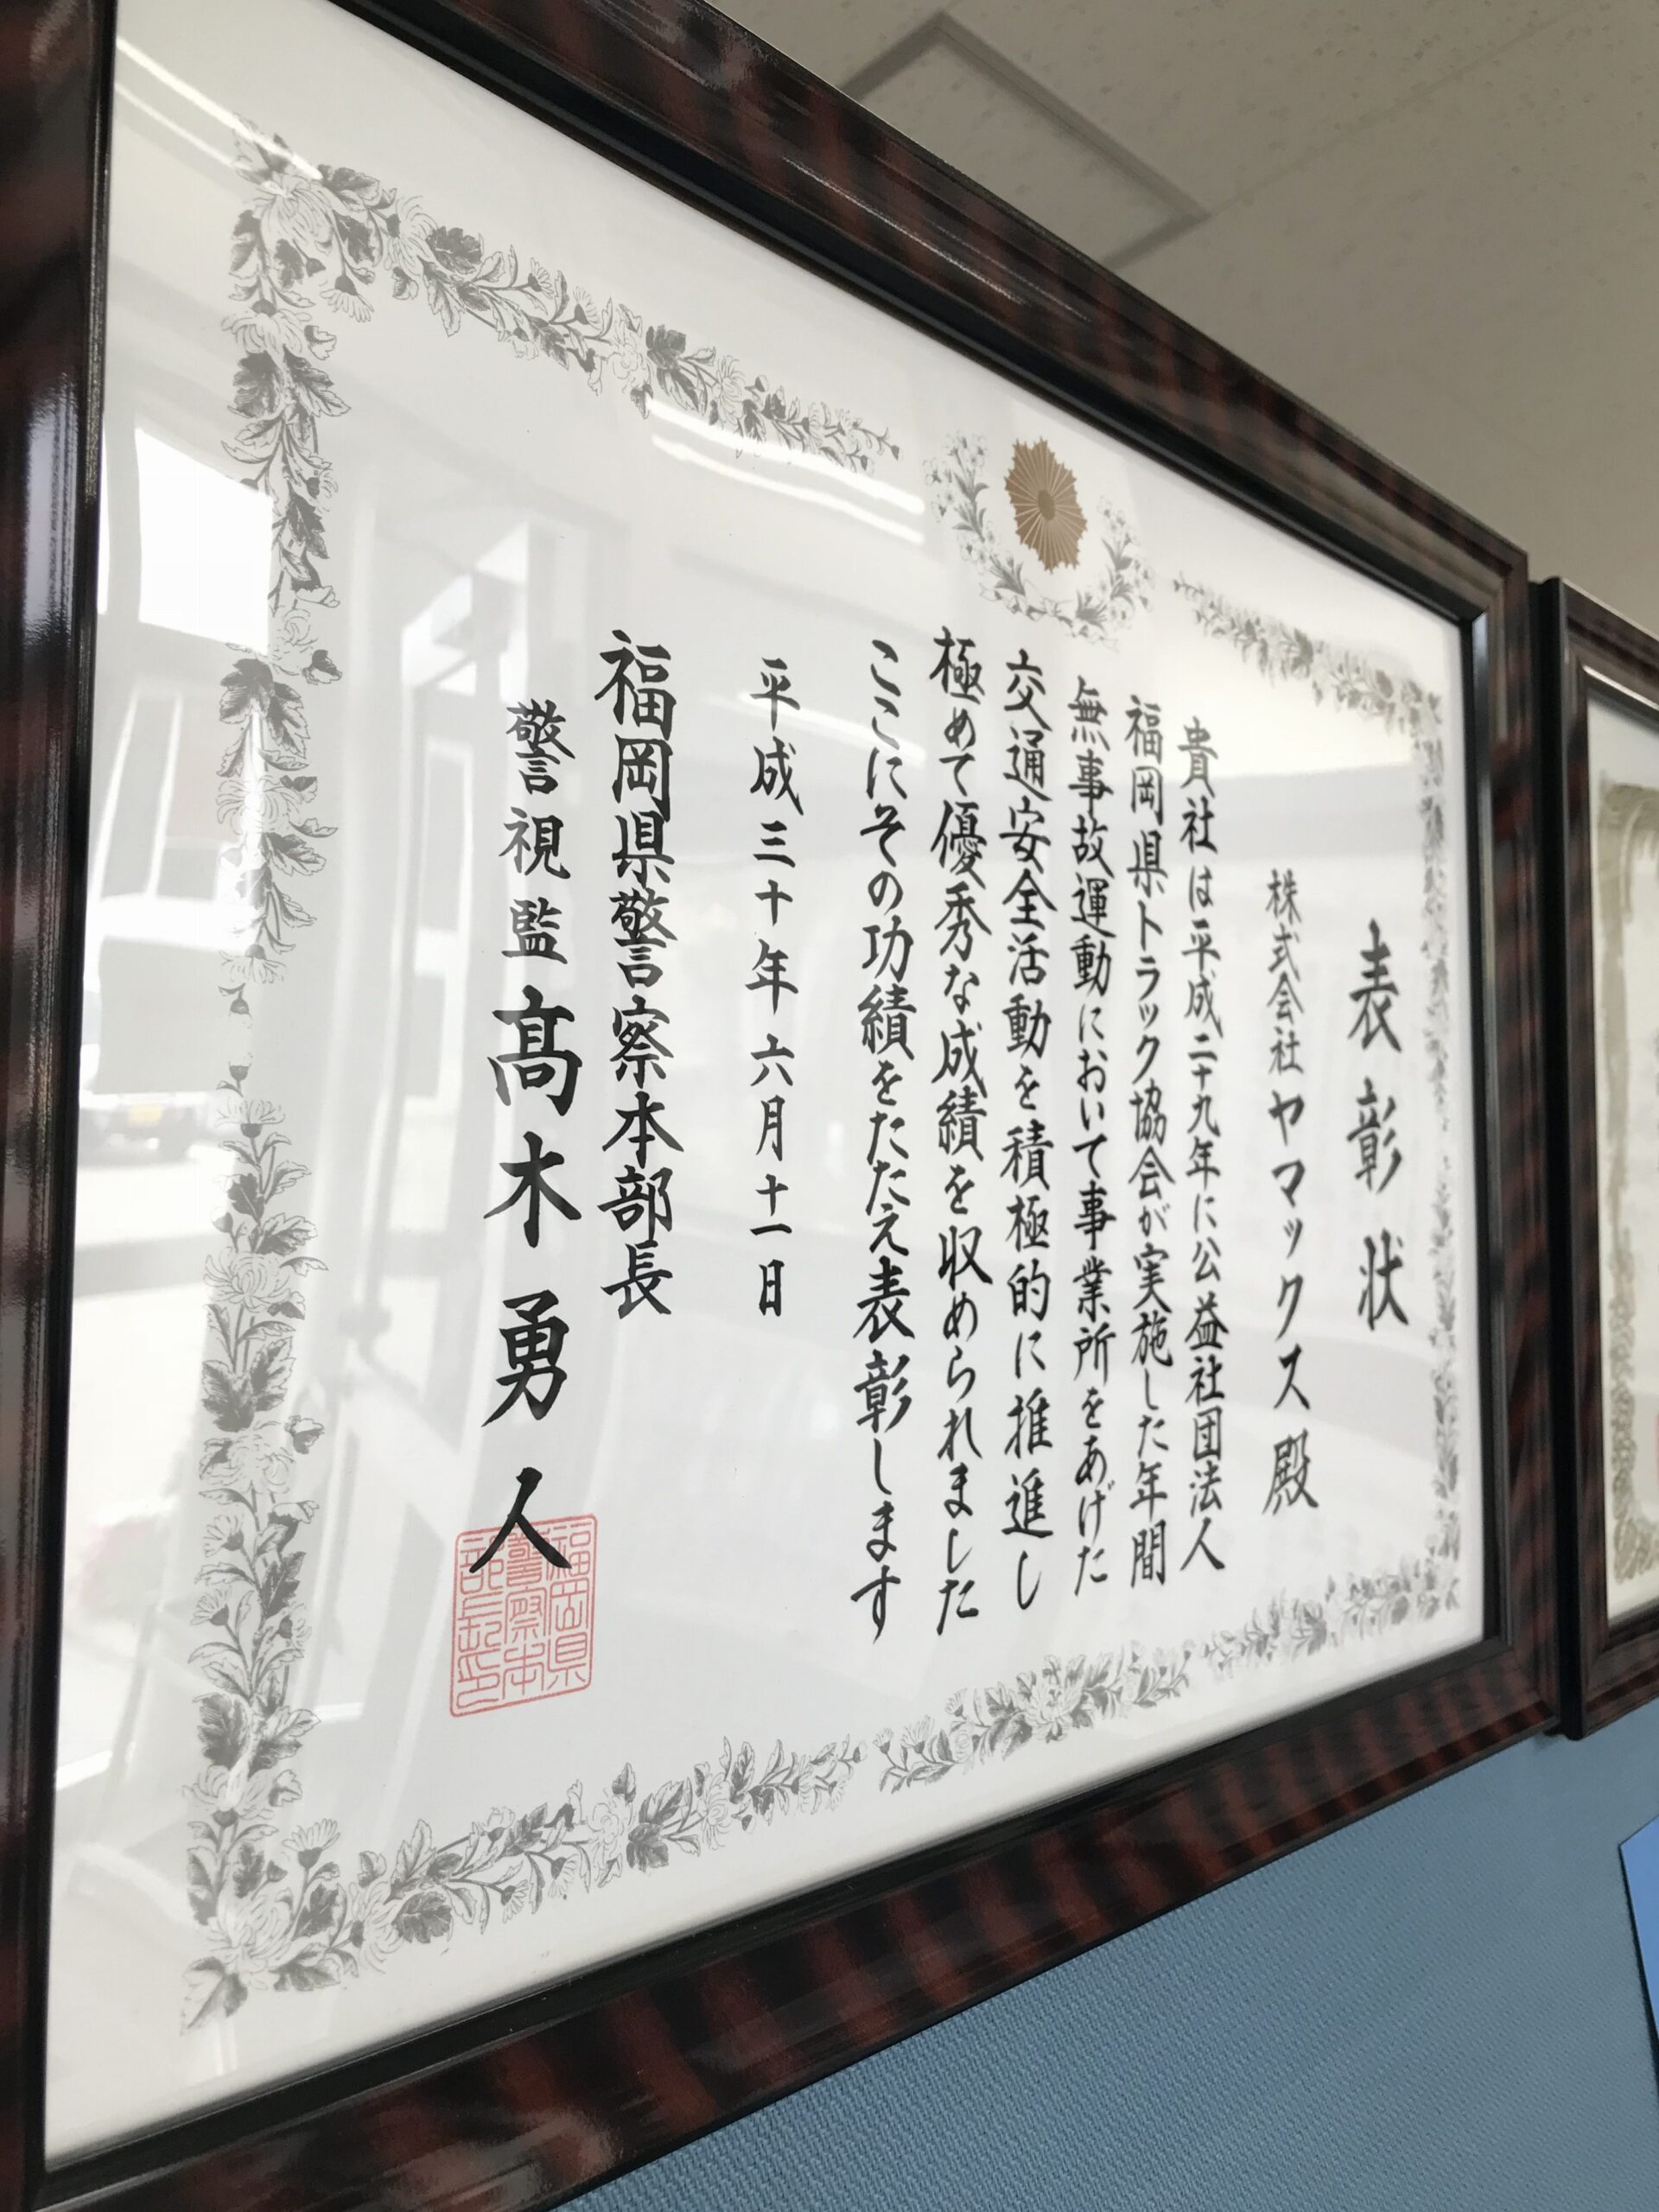 表彰状
株式会社ヤマックス殿
貴社は平成二十九年に公益社団法人
福岡県トラック協会が実施した年間
無事故運動において事業所をあげた
交通安全活動を積極的に推進し
極めて優秀な成績を収められました
ここにその功績をたたえ表彰します
平成三十年六月十一日
福岡県警察本部長
警視監髙木勇人
福岡県
警察本
部長印